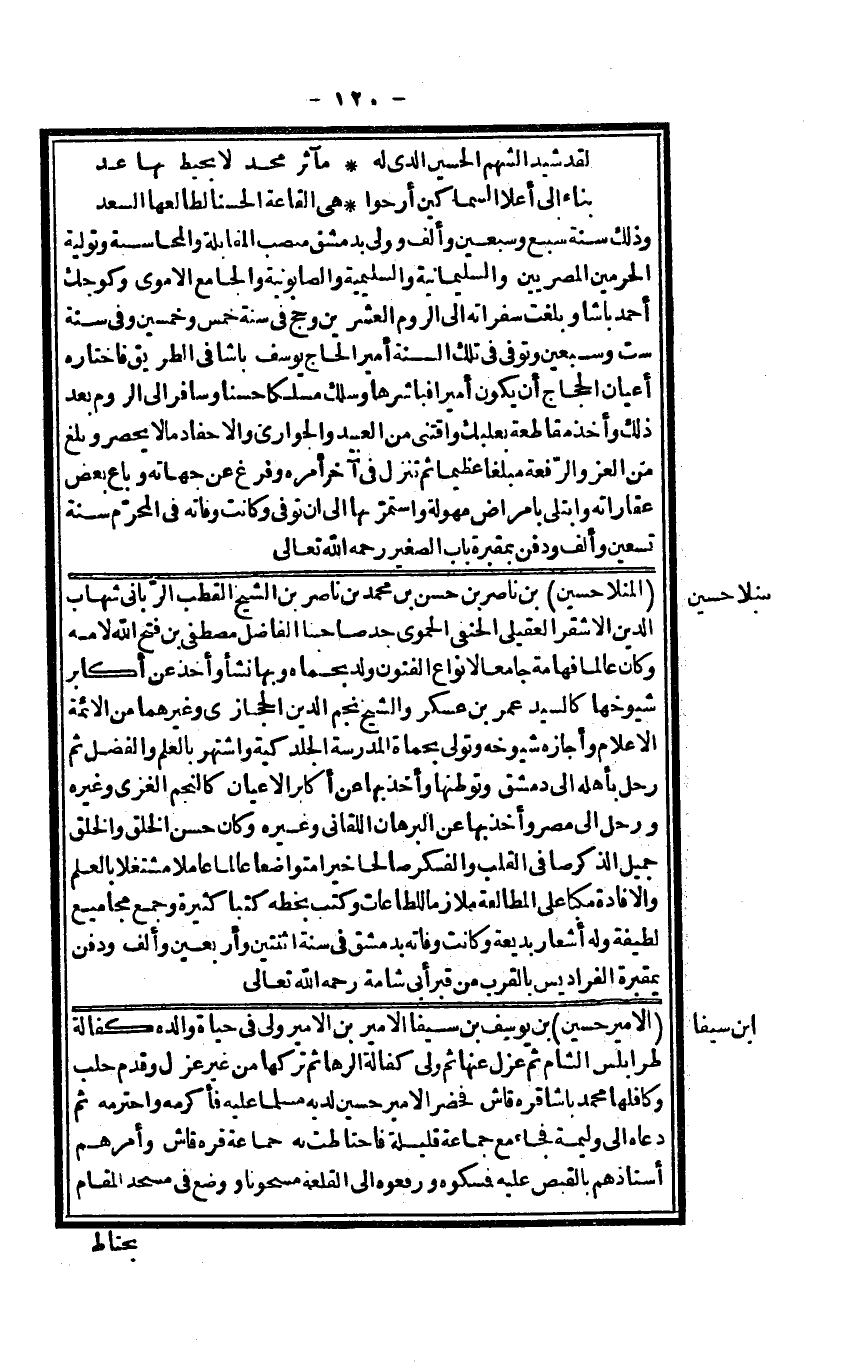 - ١٢٠ -
لقد شيد الشهم الحسين الذى له * مآثر مجد لا يحيط بها عد
بناء الى أعلا السما كين أرخوا * هى القاعة الحسنا لطالعها السعد
وذلك سنة سبع وسبعين وألف وولى بدمشق منصب المقابلة والمحاسبة وتولية
الحرمين المصريين والسليمانية والسليمية والصابونية والجامع الاموى وكوجك
أحمد باشا وبلغت سفراته الى الروم العشرين وحج فى سنة خمس وخمسين وفى سنة
ست وسبعين وتوفى فى تلك السنة أمير الحاج يوسف باشا فى الطريق فاختاره
أعيان الحجاج أن يكون أميرا فباشرها وسلك مسلكا حسنا وسافر الى الروم بعد
ذلك وأخذ مقاطعة بعلبك واقتنى من العبيد والجوارى والاحفاد مالا يحصر وبلغ
من العز والرفعة مبلغا عظيما ثم تنزل فى آخر أمره وفرغ عن جهاته وباع بعض
عقاراته وابتلى بامراض مهولة واستمرّ بها الى ان توفى وكانت وفاته فى المحرّم سنة
تسعين وألف ودفن بمقبرة باب الصغير رحمه الله تعالى
منلا حسين
(المنلا حسين) بن ناصر بن حسن بن محمد بن ناصر بن الشيخ القطب الربانى شهاب
الدين الاشقر العقيلى الحنفى الحموى جد صاحبنا الفاضل مصطفى بن فتح الله لامه
وكان عالما فهامة جامعا لانواع الفنون ولد بحماه وبها نشأ وأخذ عن أكابر
شيوخها كالسيد عمر بن عسكر والشيخ نجم الدين الحجازى وغيرهما من الائمة
الاعلام وأجازه شيوخه وتولى بحماة المدرسة الجلدكية واشتهر بالعلم والفضل ثم
رحل بأهله الى دمشق وتوطنها وأخذ بها عن أكابر الاعيان كالنجم الغزى وغيره
ورحل الى مصر وأخذ بها عن البرهان اللقانى وغيره وكان حسن الخلق والخلق
جميل الذكر صافى القلب والفكر صالحا خيرا متواضعا عالما عاملا مشتغلا بالعلم
والافادة مكبا على المطالعة ملازما للطاعات وكتب بخطه كتبا كثيرة وجمع مجاميع
لطيفة وله أشعار بديعة وكانت وفاته بدمشق فى سنة اثنتين وأربعين وألف ودفن
بمقبرة الفراديس بالقرب من قبر أبى شامة رحمه الله تعالى
ابن سيفا
(الامير حسين) بن يوسف بن سيفا الامير بن الامير ولى فى حياة والده كفالة
طرابلس الشام ثم عزل عنها ثم ولى كفالة الرها ثم تركها من غير عزل وقدم حلب
وكافلها محمد باشا قره قاش فحضر الامير حسين لديه مسلما عليه فأكرمه واحترمه ثم
دعاه الى وليمة فجاء مع جماعة قليلة فاحتاطت به جماعة قره قاش وأمرهم
أستاذهم بالقبض عليه فمسكوه ورفعوه الى القلعة مسجونا ووضع فى مسجد المقام
يحتاط